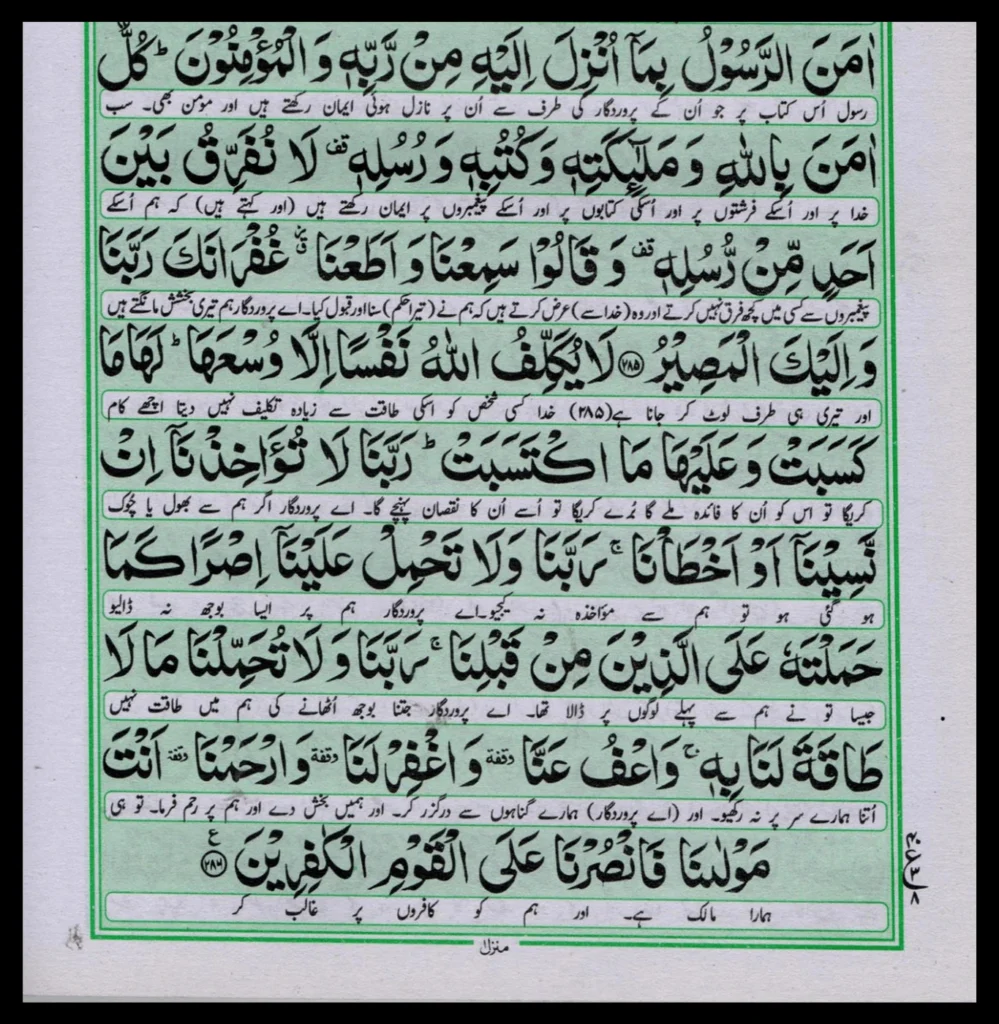 اٰمَنَ الرَّسُوْلُ بِمَاۤ اُنْزِلَ اِلَيْهِ مِنْ رَّبِّهٖ وَ الْمُؤْمِنُوْنَ ؕ كُلٌّ
رسول اُس کتاب پر جو اُن کے پروردگار کی طرف سے اُن پر نازل ہوئی ایمان رکھتے ہیں اور مومن بھی۔ سب
اٰمَنَ بِاللّٰهِ وَ مَلٰٓئِكَتِهٖ وَ كُتُبِهٖ وَ رُسُلِهٖ قف لَا نُفَرِّقُ بَيْنَ
خدا پر اور اُسکے فرشتوں پر اور اُسکی کتابوں پر اور اُسکے پیغمبروں پر ایمان رکھتے ہیں (اور کہتے ہیں) کہ ہم اُسکے
اَحَدٍ مِّنْ رُّسُلِهٖ قف وَ قَالُوْا سَمِعْنَا وَ اَطَعْنَا غُفْرَانَكَ رَبَّنَا
پیغمبروں سے کسی میں کچھ فرق نہیں کرتے اور وہ (خدا سے) عرض کرتے ہیں کہ ہم نے (تیرا حکم) سنا اور قبول کیا۔ اے پروردگار ہم تیری بخشش مانگتے ہیں
وَ اِلَيْكَ الْمَصِيْرُ ۝۲۸۵ لَا يُكَلِّفُ اللّٰهُ نَفْسًا اِلَّا وُسْعَهَا ؕ لَهَا مَا
اور تیری ہی طرف لوٹ کر جانا ہے (۲۸۵) خدا کسی شخص کو اسکی طاقت سے زیادہ تکلیف نہیں دیتا اچھے کام
كَسَبَتْ وَ عَلَيْهَا مَا اكْتَسَبَتْ ؕ رَبَّنَا لَا تُؤَاخِذْنَاۤ اِنْ
کریگا تو اس کو اُن کا فائدہ ملے گا بُرے کریگا تو اُسے اُن کا نقصان پہنچے گا۔ اے پروردگار اگر ہم سے بھول یا چُوک
نَّسِيْنَاۤ اَوْ اَخْطَاْنَا ۚ رَبَّنَا وَ لَا تَحْمِلْ عَلَيْنَاۤ اِصْرًا كَمَا
ہو گئی ہو تو ہم سے مؤاخذہ نہ کیجیو۔ اے پروردگار ہم پر ایسا بوجھ نہ ڈالیو
حَمَلْتَهٗ عَلَى الَّذِيْنَ مِنْ قَبْلِنَا ۚ رَبَّنَا وَ لَا تُحَمِّلْنَا مَا لَا
جیسا تو نے ہم سے پہلے لوگوں پر ڈالا تھا۔ اے پروردگار جتنا بوجھ اُٹھانے کی ہم میں طاقت نہیں
طَاقَةَ لَنَا بِهٖ ۚ وَ اعْفُ عَنَّا وقفة وَ اغْفِرْ لَنَا وقفة وَ ارْحَمْنَا وقفة اَنْتَ
اُتنا ہمارے سر پر نہ رکھیو۔ اور (اے پروردگار) ہمارے گناہوں سے درگزر کر۔ اور ہمیں بخش دے اور ہم پر رحم فرما۔ تو ہی
مَوْلٰىنَا فَانْصُرْنَا عَلَى الْقَوْمِ الْكٰفِرِيْنَ ۝۲۸۶ ع
ہمارا مالک ہے۔ اور ہم کو کافروں پر غالب کر
منزل